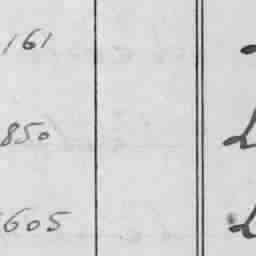 161
850
605